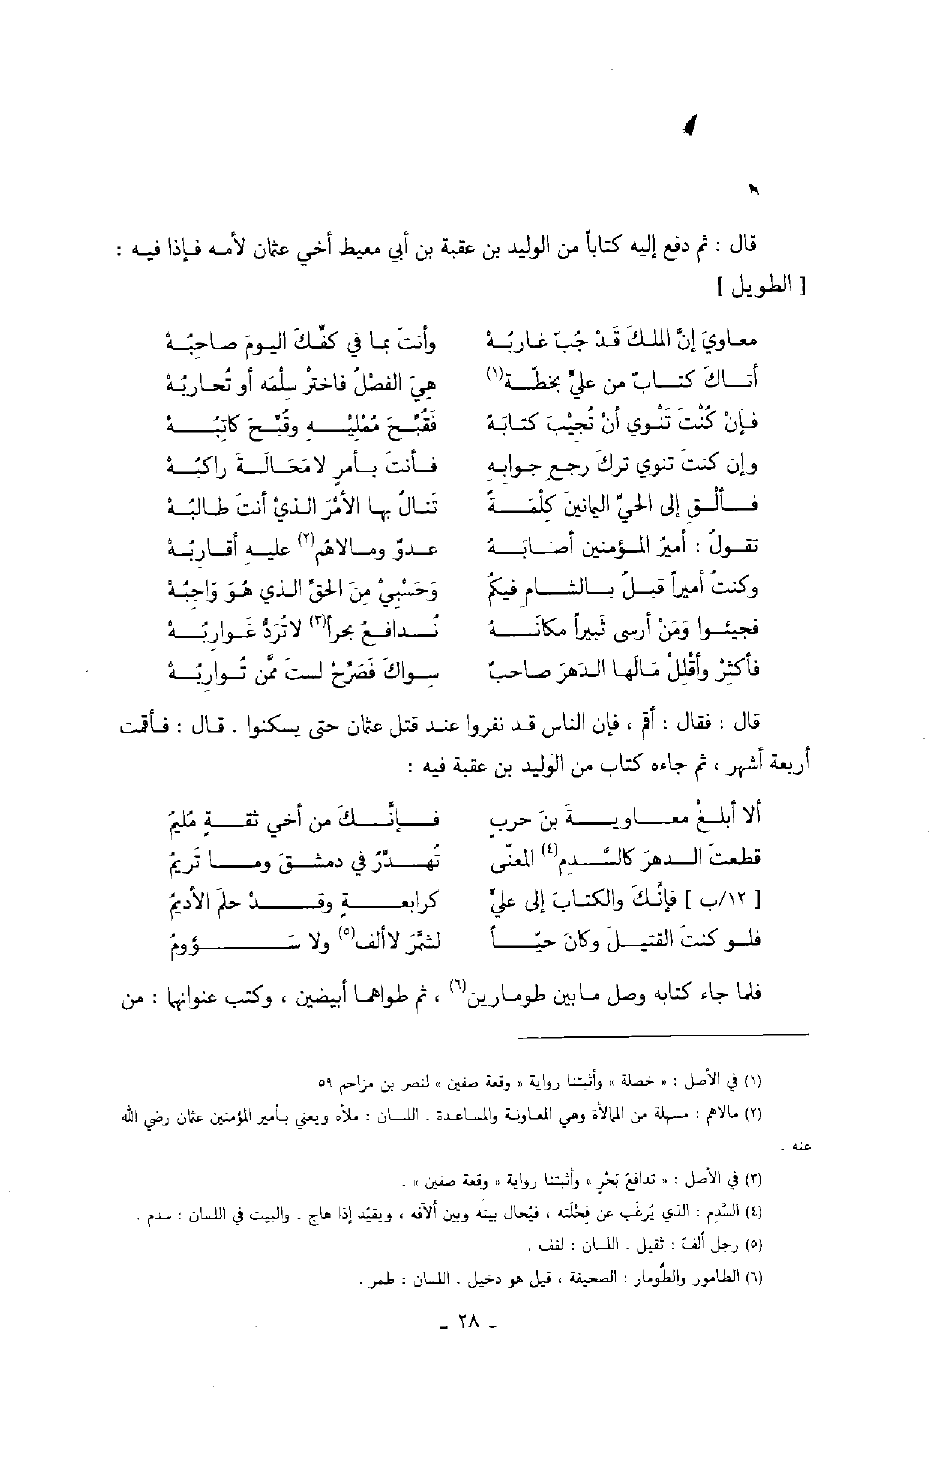 قال : ثم دفع إليه كتاباً من الوليد بن عقبة بن أبي معيط أخي عثمان لأمه فإذا فيه :
[ الطويل ]
معاويَ إنَّ الملكَ قدْ جُبَ غاربُهْ وأنتَ بما في كفّكَ اليومَ صاحبُهْ
أتاكَ كتابٌ من عليٍّ بخطّةٍ(١) هيَ الفصْلُ فاخترْ سلمَهُ أو تُحاربُهْ
فإنْ كُنْتَ تَنْوي أنْ تُجيْبَ كتابَهُ فقُبّحَ مُمْليْهِ وقُبّحَ كاتبُهْ
وإن كنتَ تنوي تركَ رجعِ جوابهِ فأنتَ بأمرٍ لا مَحَالةَ راكبُهْ
فألقِ إلى الحيّ اليمانينَ كلْمَةً تَنالُ بها الأمْرَ الذيْ أنتَ طالبُهْ
تقولُ : أميرُ المؤمنين أصابَهُ عدوٌّ ومالاهُم(٢) عليهِ أقاربُهْ
وكنتُ أميراً قبلُ بالشامِ فيكمُ وَحَسْبِيْ مِنَ الحقّ الذي هُوَ وَاجبُهْ
فجيئوا وَمَنْ أرسى ثَبيراً مكانَهُ نُدافعْ بحراً(٣) لا تُرَدُّ غَواربُهْ
فأكثرْ وأقْللْ مَالَها الدهرَ صاحبٌ سواكَ فَصَرّحْ لستَ ممَّن تُواربُهْ
قال : فقال : أقم ، فإن الناس قد نفروا عند قتل عثمان حتى يسكنوا . قال : فأقمت
أربعة أشهر ، ثم جاءه كتاب من الوليد بن عقبة فيه :
ألا أبلغْ معاويةَ بنَ حربٍ فإنّكَ من أخي ثقةٍ مُليمُ
قطعتَ الدهرَ كالسَّدمِ(٤) المعنّى تُهدّرُ في دمشقَ وما تَريمُ
[ ١٢/ب ] فإنّكَ والكتابَ إلى عليٍّ كرابعةٍ وقدْ حلَم الأديمُ
فلو كنتَ القتيلَ وكان حيّاً لشمّرَ لا ألفّ(٥) ولا سَؤومُ
فلما جاء كتابه وصل ما بين طومارين(٦) ، ثم طواهما أبيضين ، وكتب عنوانها : من
(١) في الأصل : « خصلة » وأثبتنا رواية « وقعة صفين » لنصر بن مزاحم ٥٩
(٢) مالاهم : مسهلة من الممالأة وهي المعاونة والمساعدة . اللسان : ملأ، ويعني بأمير المؤمنين عثمان رضي الله
عنه .
(٣) في الأصل : « تدافعَ بَحْرٍ » وأثبتنا رواية « وقعة صفين » .
(٤) السَّدِم : الذي يُرغب عن فِحْلَته ، فيُحال بينه وبين أُلاّفه ، ويقيّد إذا هاج . والبيت في اللسان : سدم .
(٥) رجل ألفّ : ثقيل . اللسان : لفف .
(٦) الطامور والطُومار : الصحيفة ، قيل هو دخيل . اللسان : طمر .
ـ ٢٨ ـ